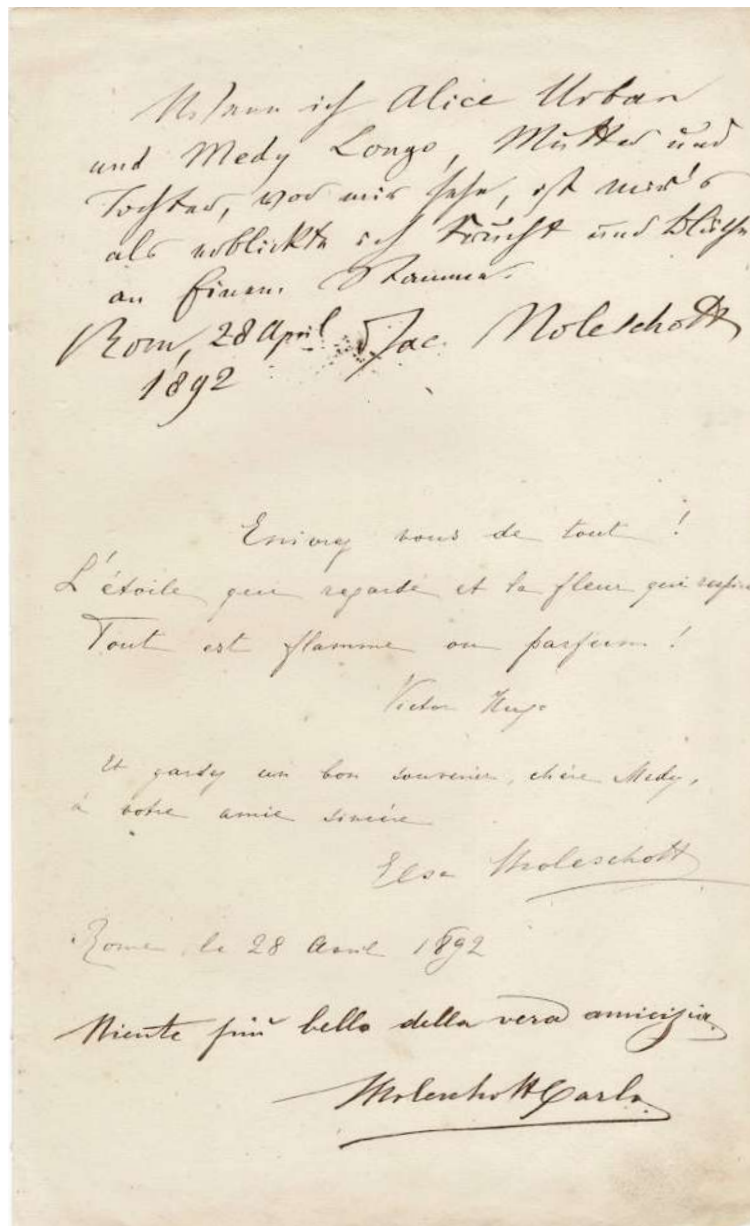 Wenn ich Alice Urban
und Medy Longo, Mutter und
Tochter, vor mir sehe, ist mir's
als erblickte ich Frucht und Blüthe
an Einem Stamme.
Rom, 28 April Jac. Moleschott
1892
Enivrez vous de tout !
L'étoile qui regarde et la fleur qui respire
Tout est flamme ou parfum !
Victor Hugo
Et gardez un bon souvenir, chère Medy,
à votre amie sincère
Elsa Moleschott
Rome le 28 Avril 1892
Niente più bello della vera amicizia.
Moleschott Carlo